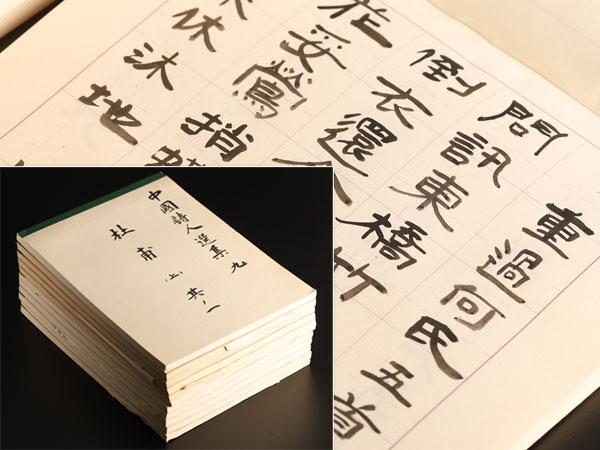 重過何氏五首
問訊東橋竹
倒衣還
花妥鶯捎
休沐地
中國詩人選集 九
杜甫 (上) 其ノ一